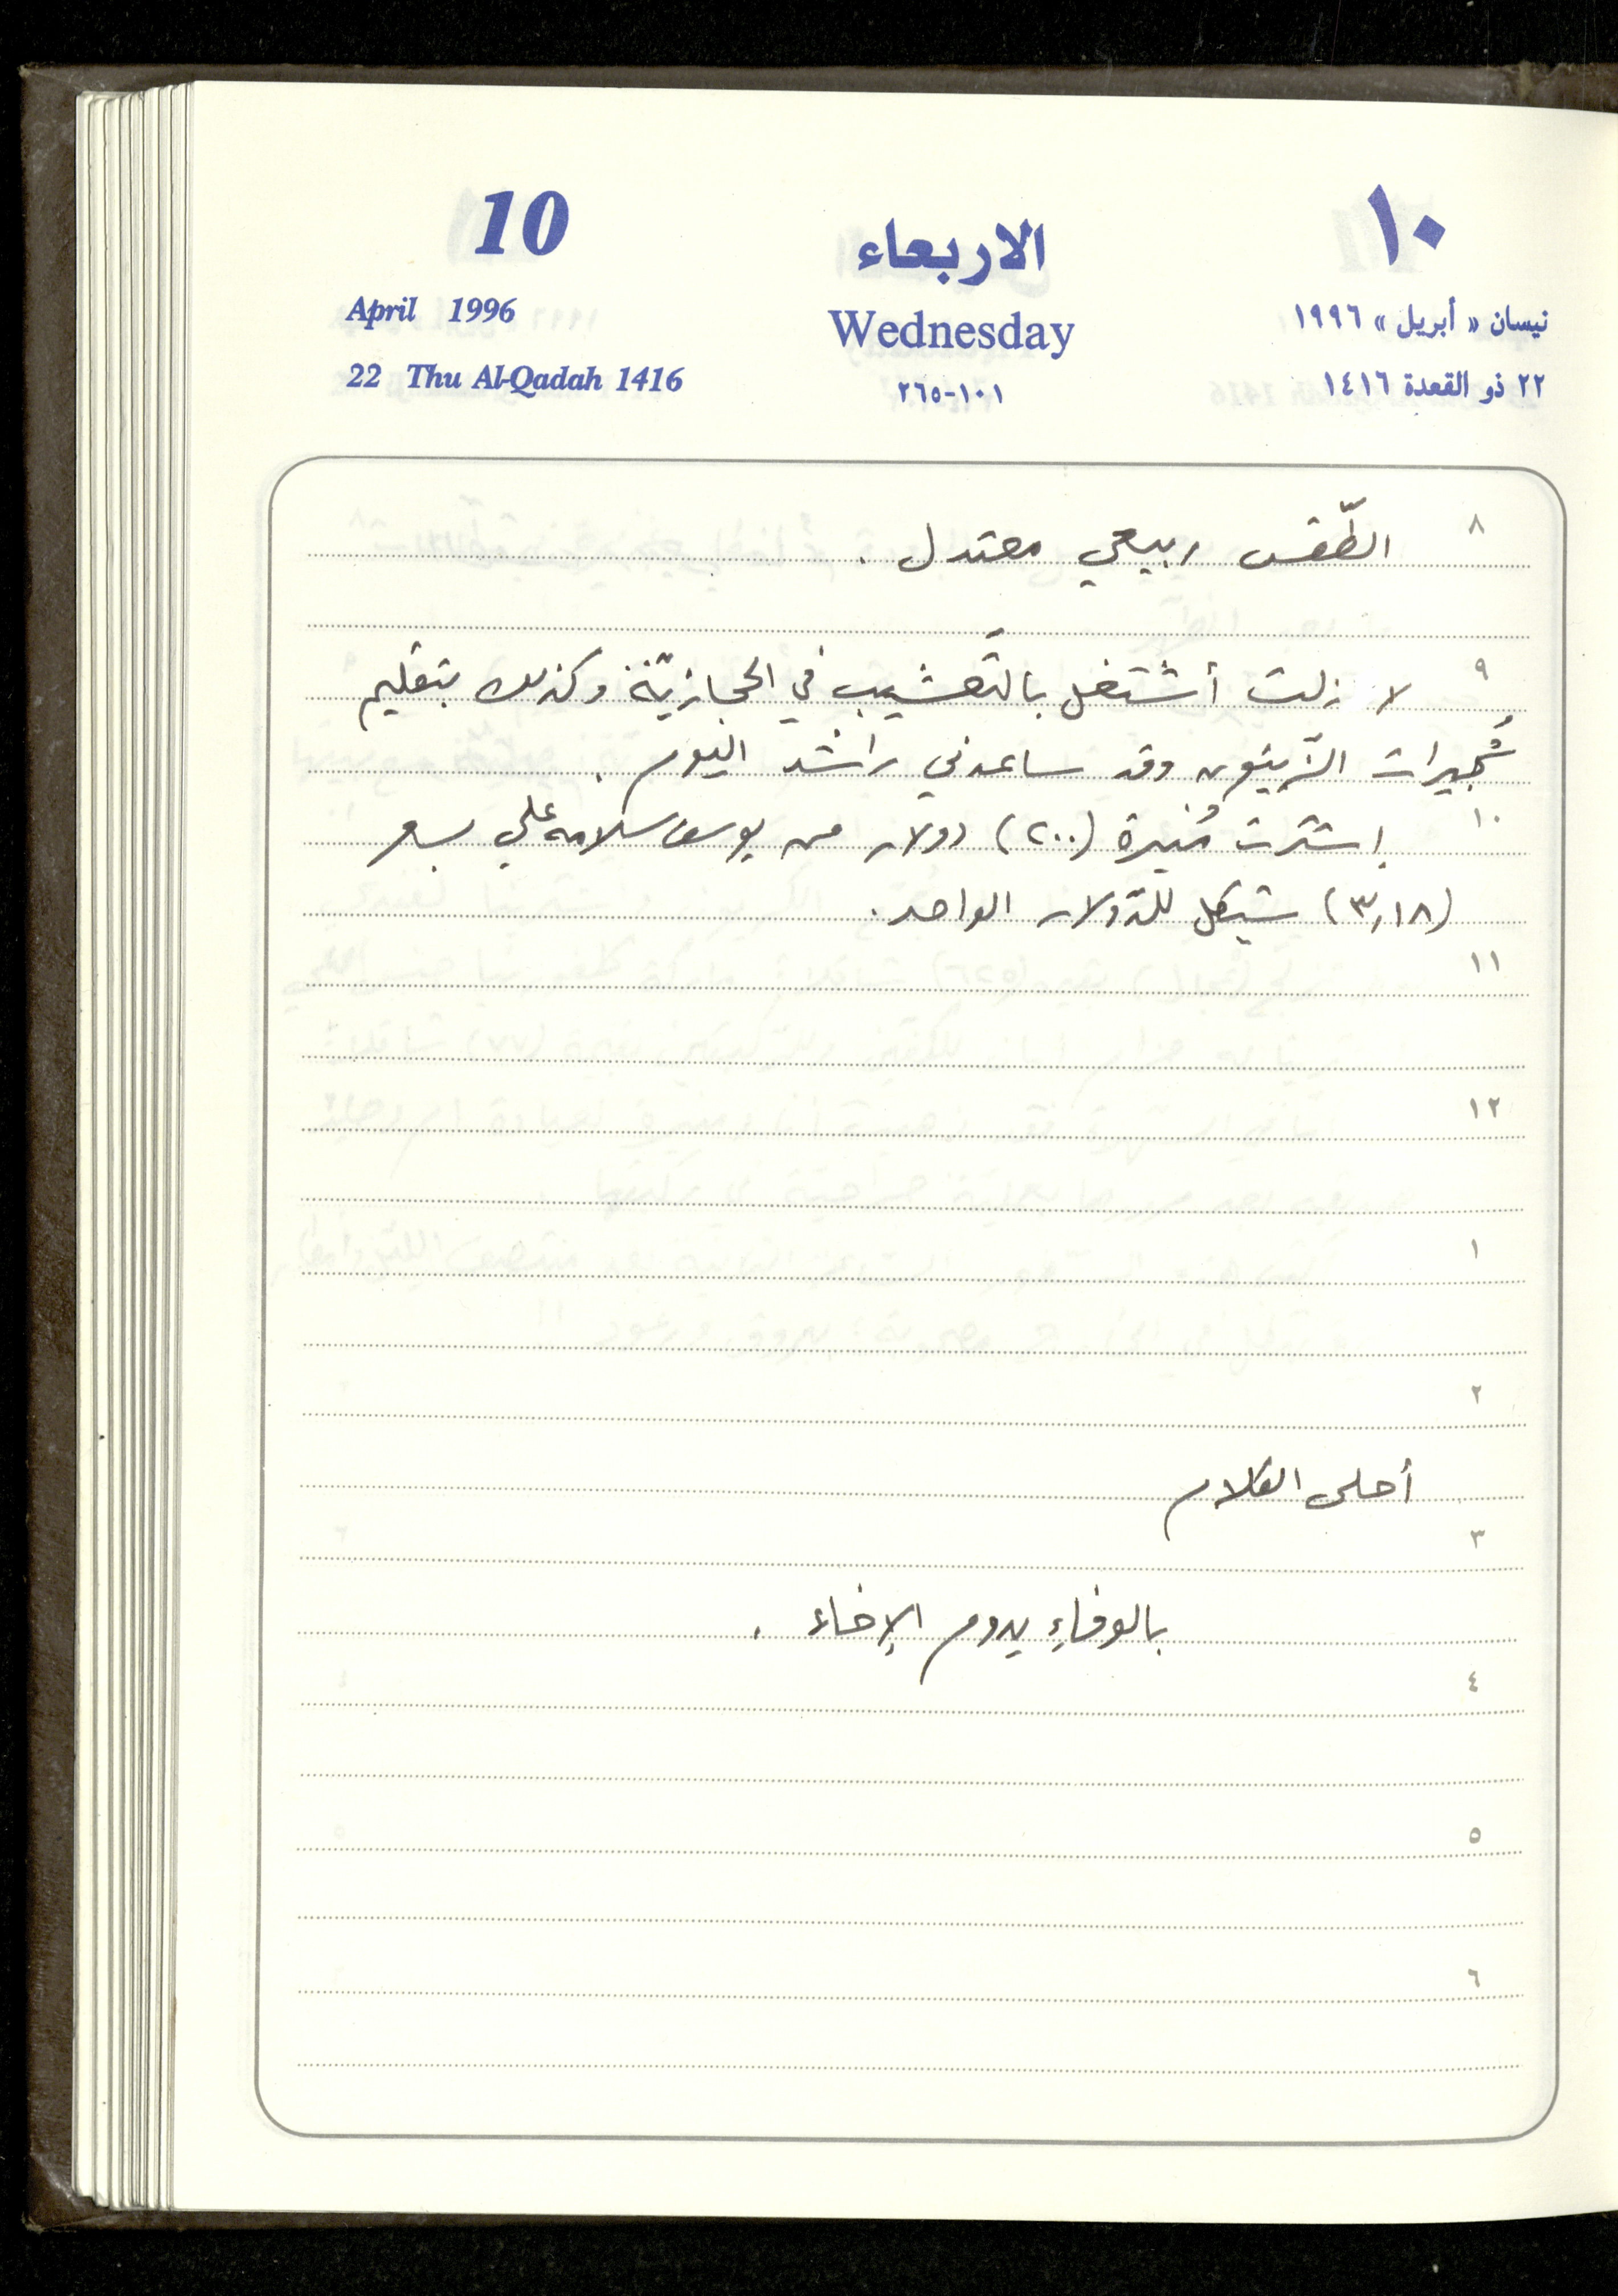 10
الاربعاء
١٠
April 1996
Wednesday
نيسان « أبريل » ١٩٩٦
22 Thu Al-Qadah 1416
٢٦٥-١٠١
٢٢ ذو القعدة ١٤١٦
٨
الطّقس ربيعي معتدل .
٩
لا زلت أشتغل بالتّعشيب في الحجازيّة وكذلك بتقليم
شُجيرات الزّيتون وقد ساعدني راشد اليوم .
١٠
إشترت مُنيرة (٢٠٠) دولار من يوسف سلامه علي بسعر
(٣,١٨) شيكل للدّولار الواحد.
١١
١٢
١
٢
أحلى الكلام
٣
بالوفاءِ يدوم الإخاء .
٤
٥
٦